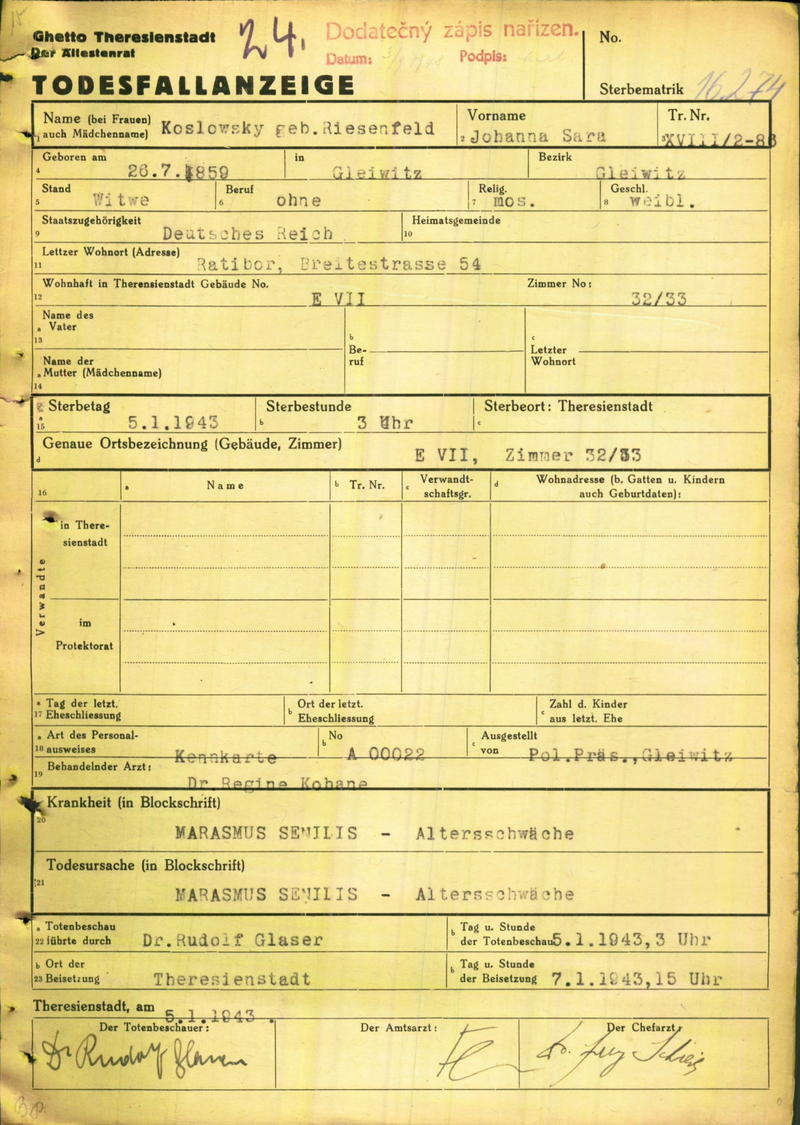 Ghetto Theresienstadt
Der Ältestenrat
24.
Dodatečný zápis nařízen.
Datum: Podpis:
No.
TODESFALLANZEIGE
Sterbematrik 16274
Name (bei Frauen) auch Mädchenname) Koslowsky geb.Riesenfeld
Vorname Johanna Sara
Tr. Nr. XVIII/2-88
1 2 3
Geboren am 26.7.1859 in Gleiwitz Bezirk Gleiwitz
4
Stand Witwe Beruf ohne Relig. mos. Geschl. weibl.
5 6 7 8
Staatszugehörigkeit Deutsches Reich Heimatsgemeinde
9 10
Lettzer Wohnort (Adresse) Ratibor, Breitestrasse 54
11
Wohnhaft in Therensienstadt Gebäude No. E VII Zimmer No: 32/33
12
Name des
a Vater
13
b
Be-
ruf
c
Letzter
Wohnort
Name der
a Mutter (Mädchenname)
14
Sterbetag 5.1.1943 Sterbestunde 3 Uhr Sterbeort: Theresienstadt
a 15 b c
Genaue Ortsbezeichnung (Gebäude, Zimmer) E VII, Zimmer 32/33
d
16 a Name b Tr. Nr. c Verwandt-
schaftsgr.
d Wohnadresse (b. Gatten u. Kindern
auch Geburtdaten):
Verwandte
in There-
sienstadt
im
Protektorat
a Tag der letzt.
17 Eheschliessung
b Ort der letzt.
Eheschliessung
c Zahl d. Kinder
aus letzt. Ehe
a Art des Personal-
18 ausweises Kennkarte
b No A 00022
c Ausgestellt
von Pol.Präs.,Gleiwitz
19 Behandelnder Arzt: Dr.Regine Kohane
Krankheit (in Blockschrift)
20
MARASMUS SENILIS - Altersschwäche
Todesursache (in Blockschrift)
21
MARASMUS SENILIS - Altersschwäche
a Totenbeschau
22 führte durch Dr.Rudolf Glaser
b Tag u. Stunde
der Totenbeschau 5.1.1943,3 Uhr
b Ort der
23 Beisetzung Theresienstadt
b Tag u. Stunde
der Beisetzung 7.1.1943,15 Uhr
Theresienstadt, am 5.1.1943 .
Der Totenbeschauer: Der Amtsarzt: Der Chefarzt
Dr Rudolf Glaser